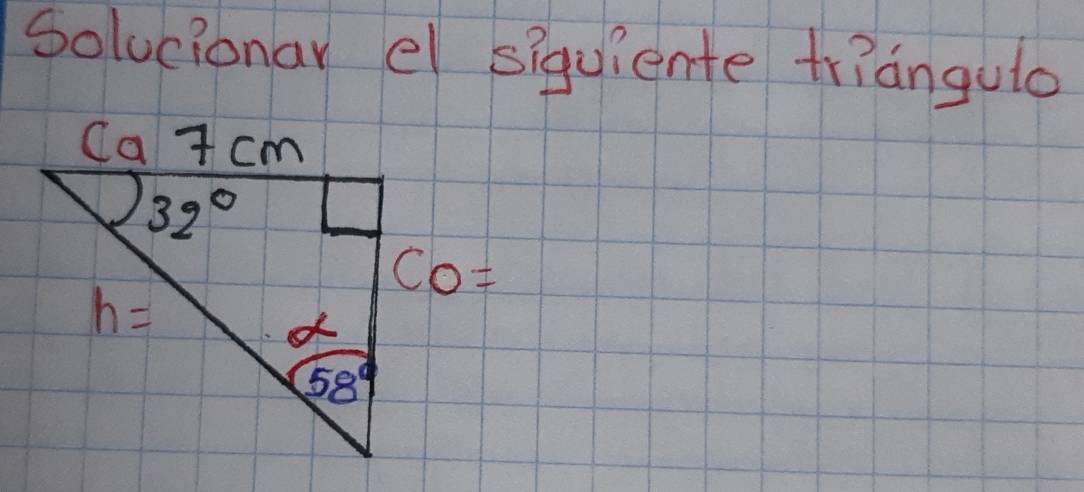 Solucionar el siguiente triángulo
Ca 7 cm
32°
Co=
h=
α
58°